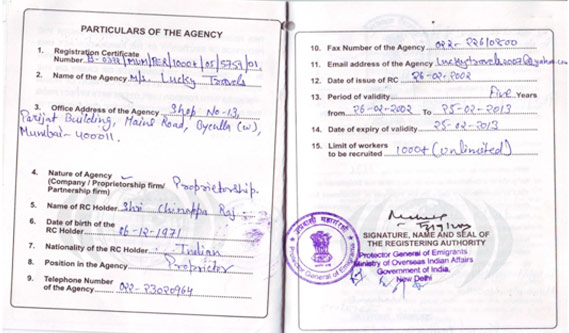 PARTICULARS OF THE AGENCY
1. Registration Certificate
Number B-0372/MUM/PER/1000+/05/5757/01.
2. Name of the Agency M/s. Lucky Travels
3. Office Address of the Agency Shop No-13,
Parijat Building, Maine Road, Byculla (W),
Mumbai- 400011.
4. Nature of Agency
(Company / Proprietorship firm/ Proprietorship.
Partnership firm)
5. Name of RC Holder Shri Chinappa Raj
6. Date of birth of the
RC Holder 06-12-1971
7. Nationality of the RC Holder Indian
8. Position in the Agency Proprietor
9. Telephone Number
of the Agency 022-23020964
10. Fax Number of the Agency 022-22610800
11. Email address of the Agency
12. Date of issue of RC 26-02-2002
13. Period of validity Five Years
from 26-02-2002 To 25-02-2013
14. Date of expiry of validity 25-02-2013
15. Limit of workers
to be recruited 1000+ (unlimited)
SIGNATURE, NAME AND SEAL OF
THE REGISTERING AUTHORITY
Protector General of Emigrants
Ministry of Overseas Indian Affairs
Government of India,
New Delhi
Protector General of Emigrants